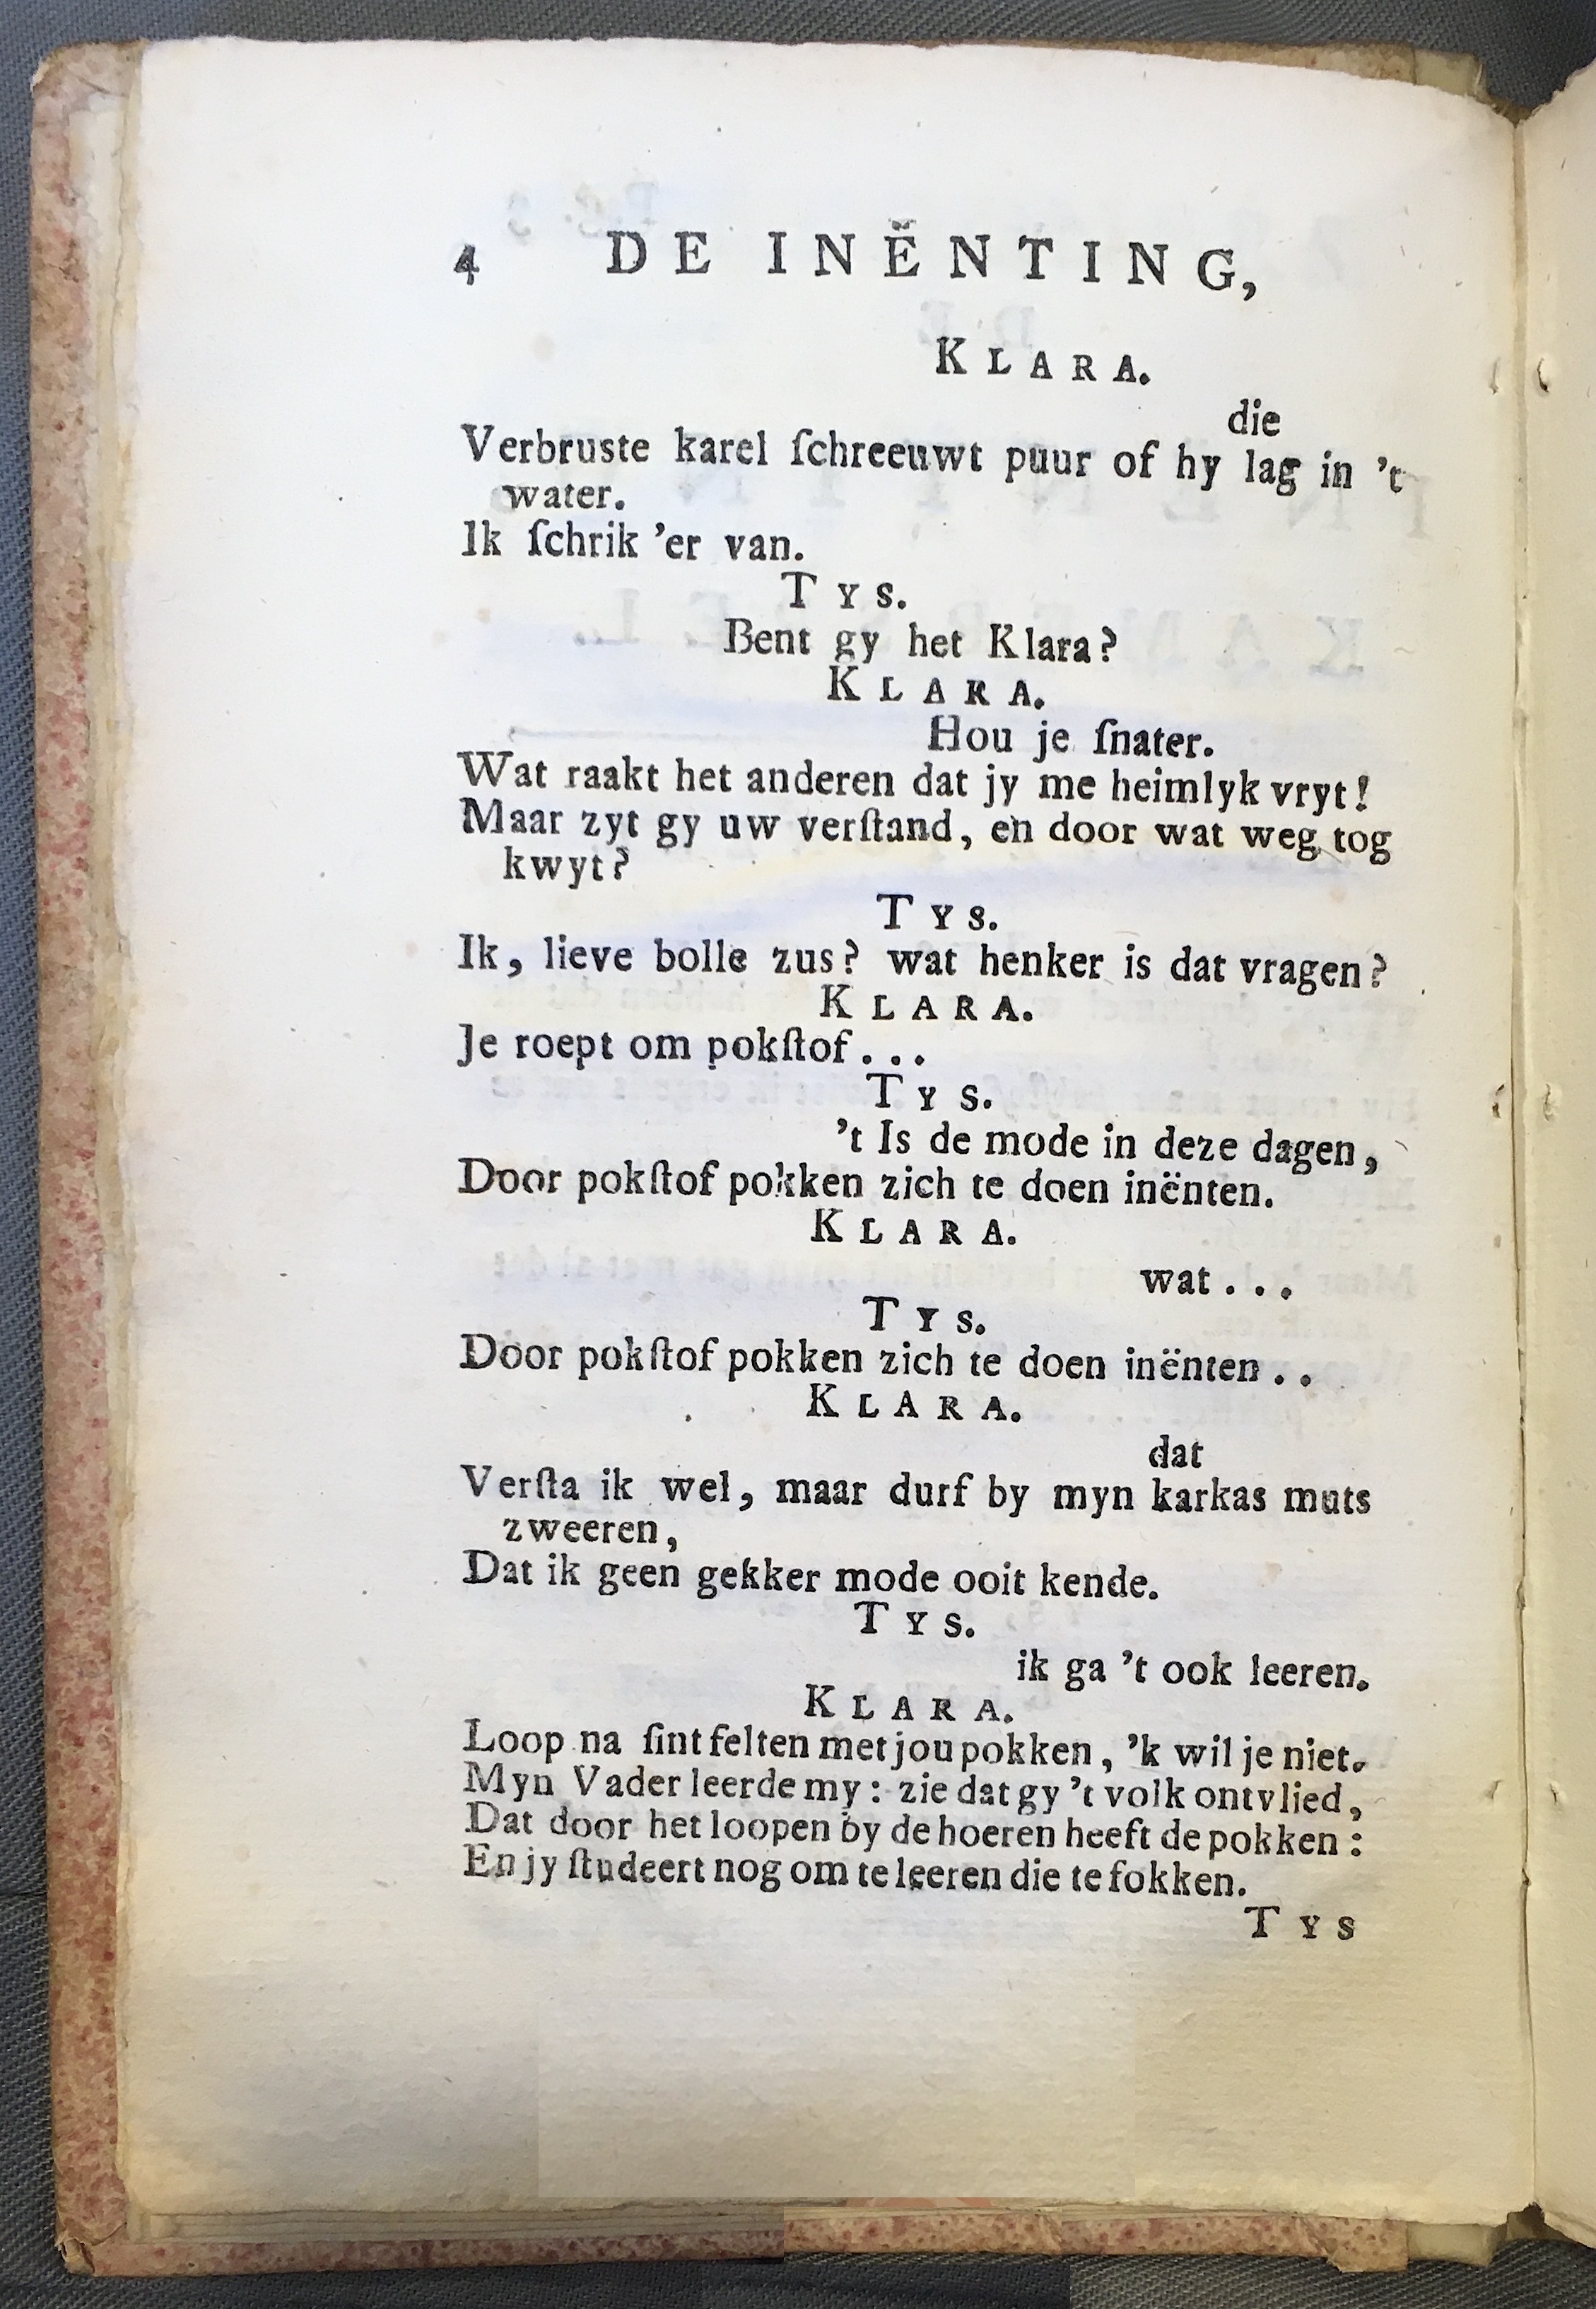 4 DE INËNTING,
KLARA.
die
Verbruste karel ſchreeuwt puur of hy lag in 't
water.
Ik ſchrik 'er van.
TYS.
Bent gy het Klara?
KLARA.
Hou je ſnater.
Wat raakt het anderen dat jy me heimlyk vryt!
Maar zyt gy uw verſtand, en door wat weg tog
kwyt?
TYS.
Ik, lieve bolle zus? wat henker is dat vragen?
KLARA.
Je roept om pokſtof...
TYS.
't Is de mode in deze dagen,
Door pokſtof pokken zich te doen inënten.
KLARA.
wat...
TYS.
Door pokſtof pokken zich te doen inënten..
KLARA.
dat
Verſta ik wel, maar durf by myn karkas muts
zweeren,
Dat ik geen gekker mode ooit kende.
TYS.
ik ga 't ook leeren.
KLARA.
Loop na ſint felten met jou pokken, 'k wil je niet.
Myn Vader leerde my: zie dat gy 't volk ontvlied,
Dat door het loopen by de hoeren heeft de pokken:
En jy ſtudeert nog om te leeren die te fokken.
TYS